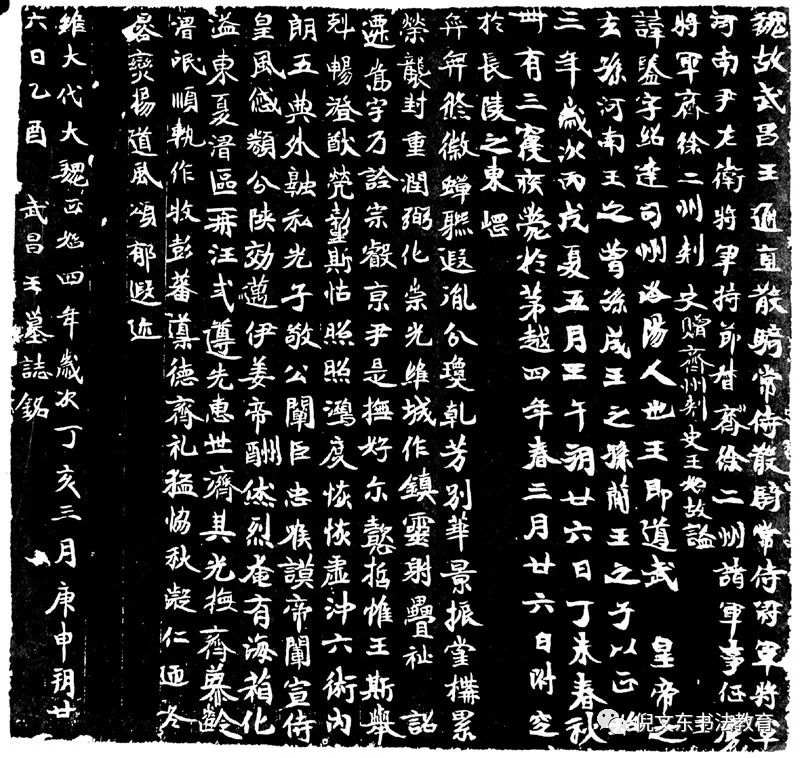 魏故武昌王通直散騎常侍散騎常侍冠軍將軍
河南尹左衛將軍持節督齊徐二州諸軍事征虜
將軍齊徐二州刺史贈齊州刺史王如故謚
諱鑒字紹達司州洛陽人也王即道武 皇帝之
玄孫河南王之曾孫成王之孫簡王之子以正始
三年歲次丙戌夏五月壬午朔廿六日丁未春秋
卌有三寢疾薨於第越四年春三月廿六日附窆
於長陵之東
弈弈脩徽蟬聯遐胤公瓊乹芳別華景振堂構累
榮襲封重潤弼化崇光維城作鎮靈射疊祉 詔
遷當宇乃詮宗叡京尹是撫好尔懿哲惟王斯舉
剋暢澄猷彰斯怙照照鴻度恢恢虛沖六術內
朗五典外融私光子敬公闡臣忠喉謨帝闡宣侍
皇風公陝効邁伊姜帝酬烈奄有海化
溢東夏區再汪弍遵先惠世濟其光撫齊慕齡
潛氓順軌作牧彭蕃導德齊礼猛協秋凝仁迊冬
晷爕揚道風頌郁遐近
維大代大魏正始四年歲次丁亥三月庚申朔廿
六日乙酉 武昌王墓誌銘
倪文东书法教育